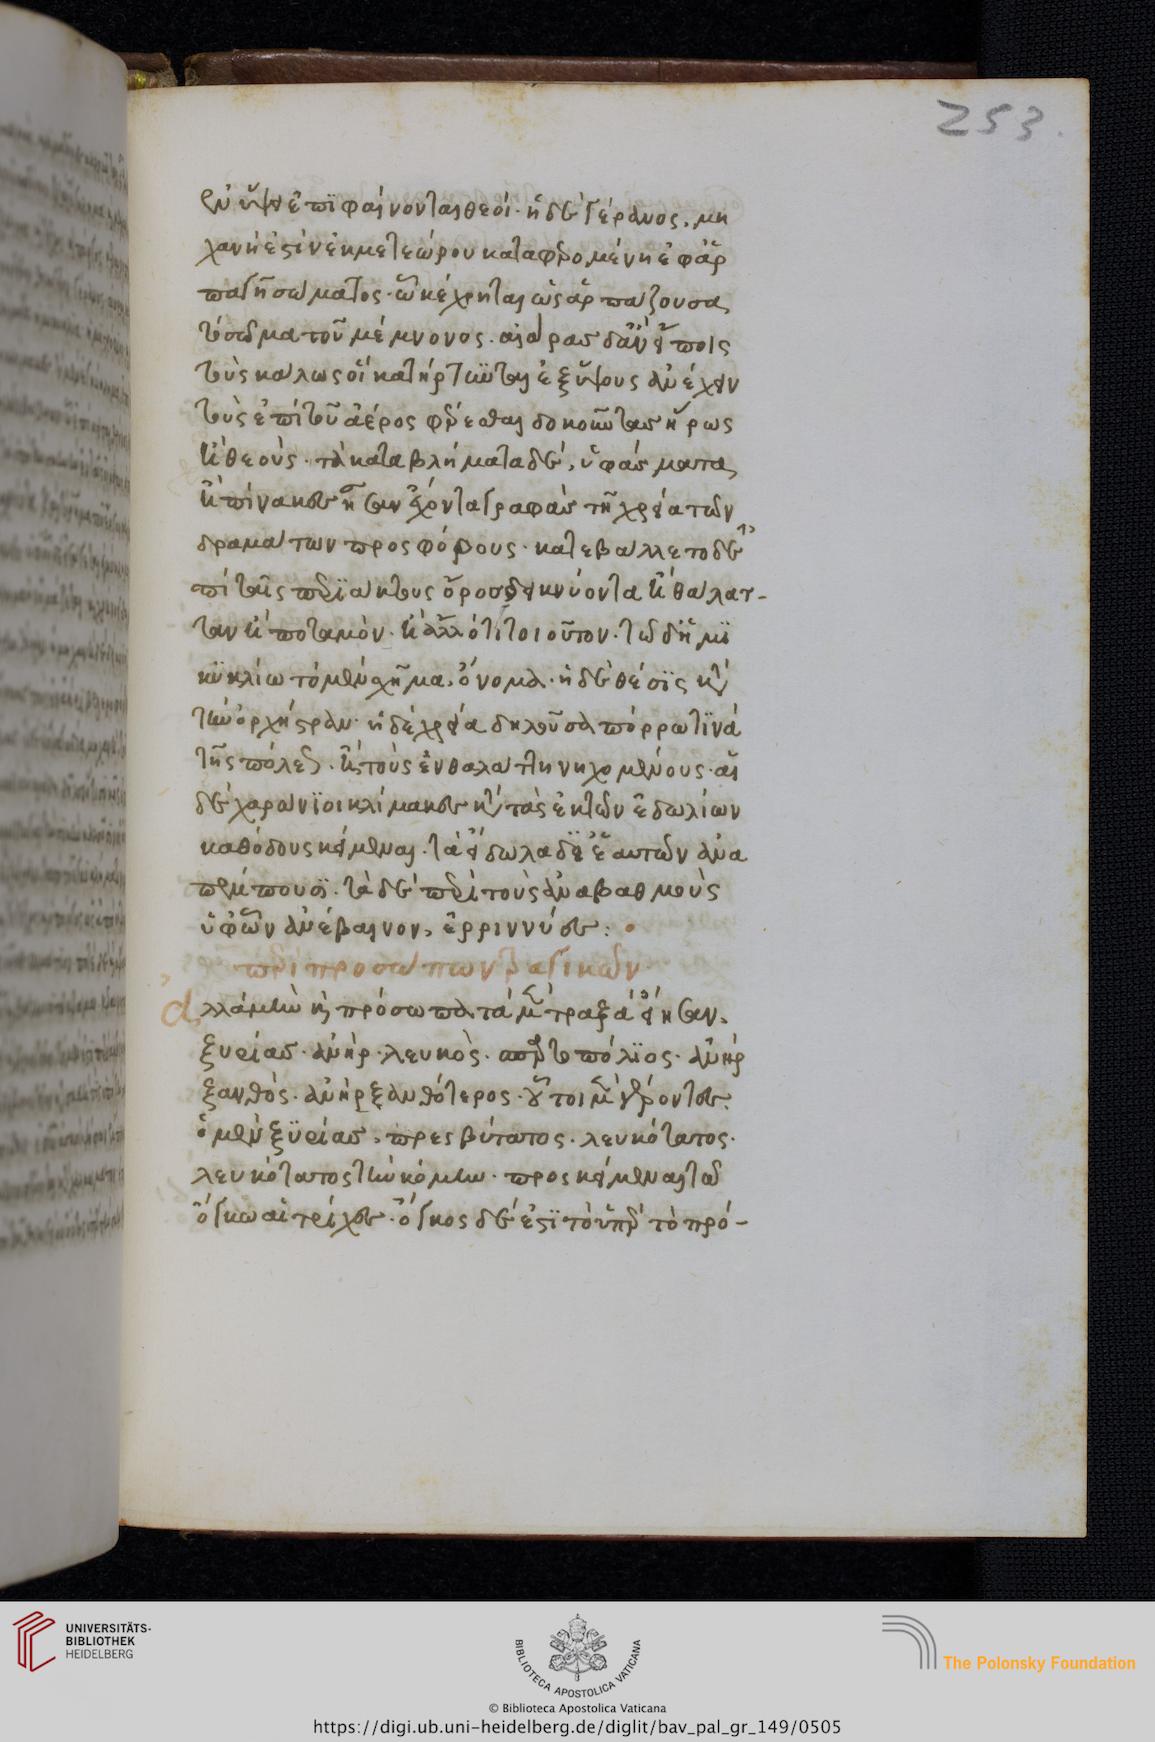 253
ἐν ὕψει ἐπϊφαίνονται θεοί· ἡ δὲ γέρανος, μη
χανή ἐστὶν ἐκ μετεώρου καταφερομένη ἐφ' ἁρ
παγῇ σώματος· ὧ κέχρηται ὡς ἁρπάζουσα
τὸ σῶμα τοῦ μέμνονος. αἰώρας δ' ἂν εἴποις
τοὺς κάλως οἵ κατήρτηνται ἐξ ὕψους ἀνέχειν
τοὺς ἐπὶ τοῦ ἀέρος φέρεσθαι δοκοῦντας ἥρως
καὶ θεούς· τὰ καταβλήματα δὲ, ὑφάσματα
καὶ πίνακες ἦσαν ἔχοντα γραφὰς τῇ χρείᾳ τῶν
δραμάτων προσφόρους· κατεβάλλετο δὲ ἐ
πὶ τὰς περϊάκτους ὄρος δεικνύοντα καὶ θάλατ-
ταν καὶ ποταμόν· καὶ ἄλλό τι τοιοῦτον· τῷ δὴμϊ
κϋκλίῳ τὸ μὲν σχῆμα, ὄνομα· ἡ δὲ θέσϊς κατὰ
τὴν ὀρχήστραν· ἡ δέ χρεία δηλοῦσα πόρρω τϊνά
τῆς πόλεως· καὶ τοὺς ἐν θαλάττῃ νηχομένους· αἱ
δὲ χαρώνϊοι κλίμακες κατὰ τὰς ἐκ τῶν ἐδωλίων
καθόδους κείμεναι· τὰ εἴδωλα δϊ' ἑαυτῶν ἀνα
πέμπουσϊ. τὰ δὲ περὶ τοὺς ἀναβαθμοὺς
ὑφ' ὧν ἀνέβαινον, ἐρριννύσε:
περὶ προσώπων
ἀλλὰ μὴν καὶ πρόσωπα τὰ μὲν τραγικὰ εἴη ἂν,
ξυρίας· ἀνὴρ λευκὸς· σπαρτοπόλϊος· ἀνὴρ
ξανθός· ἀνὴρ ξανθότερος· οὗτοι μὲν γέροντες.
ὁ μὲν ξϋρίας, πρεσβύτατος· λευκότατος·
λευκότατος τὴν κόμην· προσκείμεναι τῷ
ὄγκῳ αἱ τρίχες· ὄγκος δὲ ἐστϊ τὸ ὑπὲρ τὸ πρό-
UNIVERSITÄTS-
BIBLIOTHEK
HEIDELBERG
BIBLIOTECA APOSTOLICA VATICANA
© Biblioteca Apostolica Vaticana
The Polonsky Foundation
https://digi.ub.uni-heidelberg.de/diglit/bav_pal_gr_149/0505